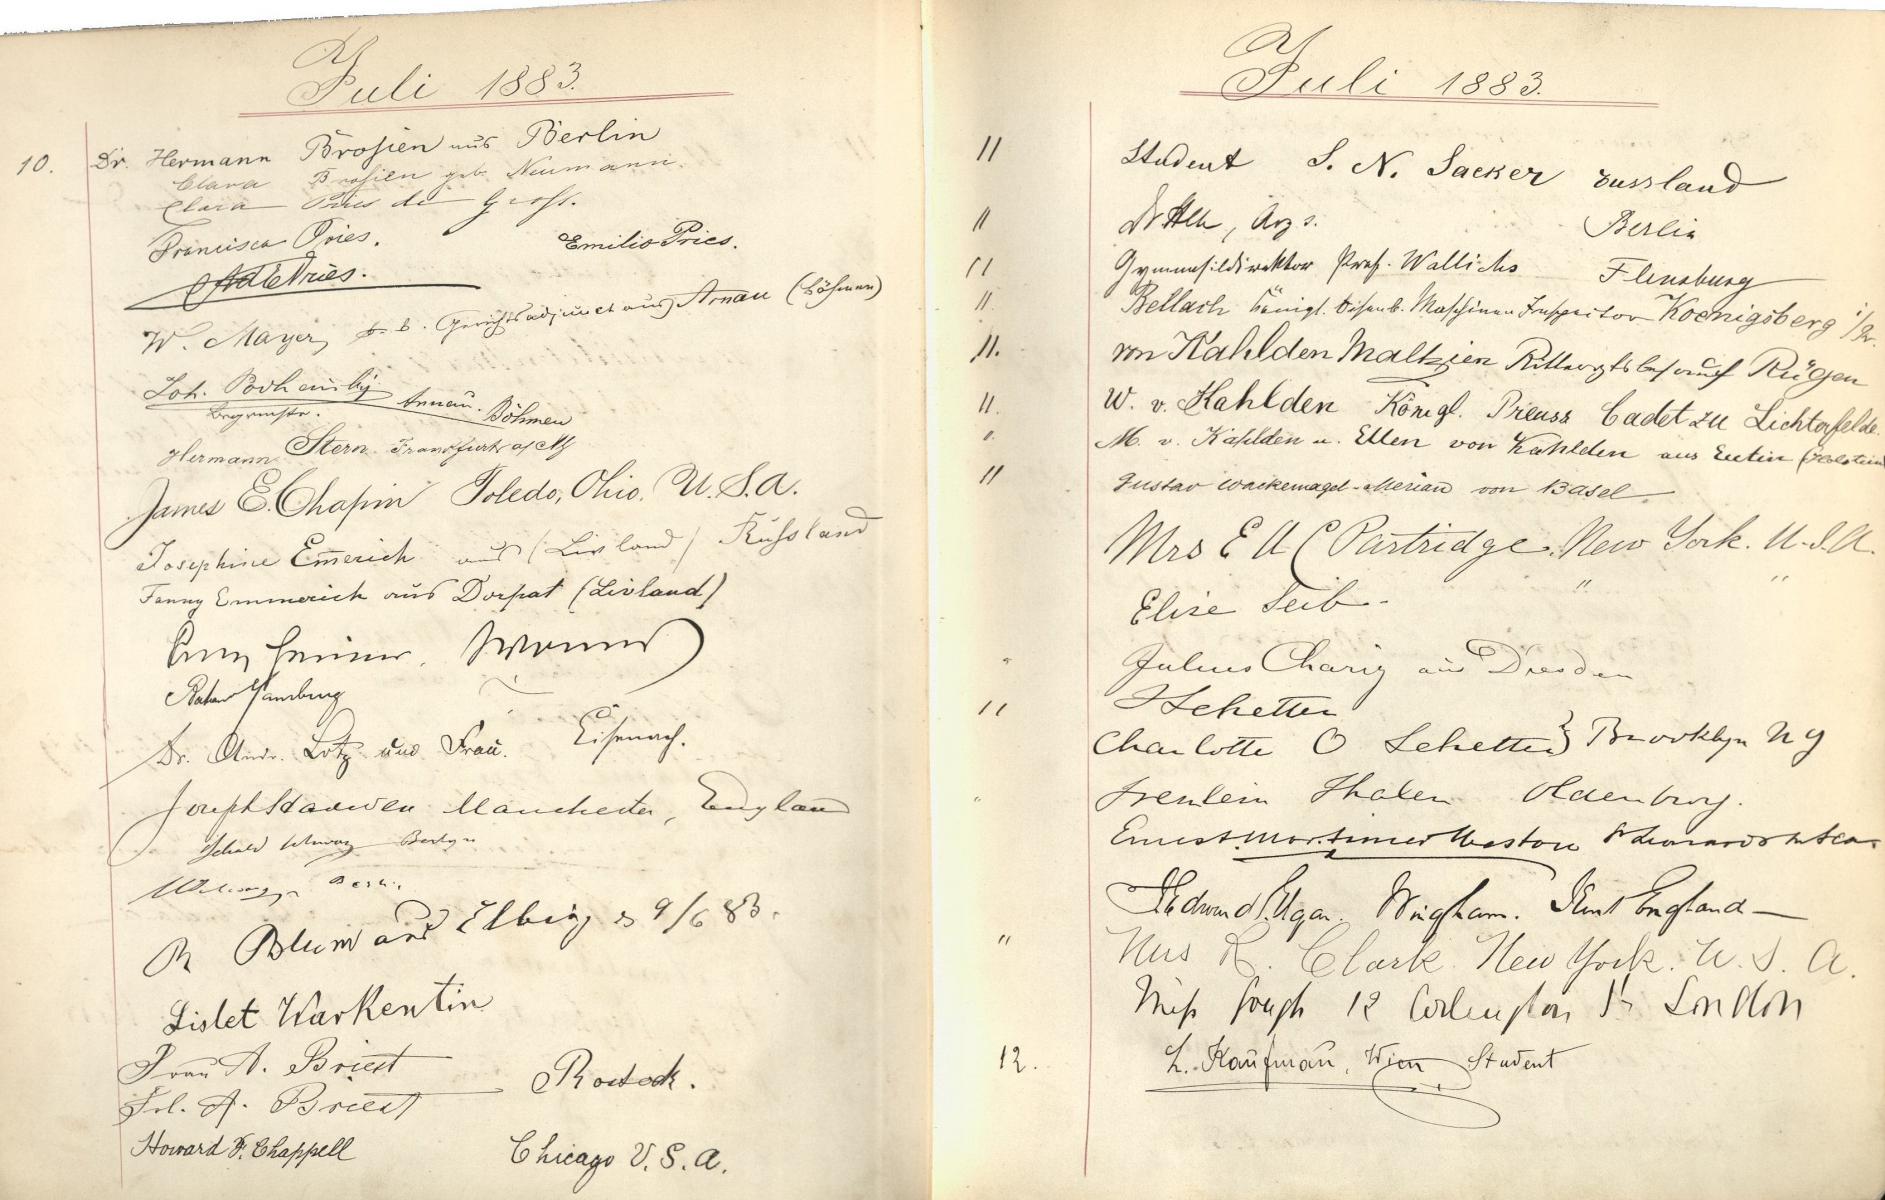 Juli 1883.
10. Dr. Hermann Brosien aus Berlin
Clara Brosien geb. Neumann
Clara Pries
Francisca Pries. Emilio Pries.
Pries.
W. Mayer, k. k. Gerichtsadjunct aus Arnau (Böhmen)
Joh. Arnau. Böhmen
Hermann Stern Frankfurt a/M
James E. Chapin Toledo, Ohio. U.S.A.
Josephine Emerich aus (Livland) Russland
Fanny Emmerich aus Dorpat (Livland)
Hamburg
Dr. Andr. Lotz und Frau. Eisenach.
Joseph Manchester, England
Berlin
R Blum aus Elbing d 9/6 83.
Lislet Warkentin
Frau A. Briest
Frl. A. Briest Rostock.
Howard F. Chappell Chicago U.S.A.
Juli 1883.
11 Student S. N. Sacker Russland
11 Berlin
11 Gymnasialdirektor Prof. Wallichs Flensburg
11. Bellach Königl. Eisenb. Maschinen Inspector Koenigsberg i/Pr.
11. von Kahlden Maltzien Rittergutsbes auf Rügen
11. W. v. Kahlden Königl. Preuss Cadet zu Lichterfelde.
" M. v. Kahlden u. Ellen von Kahlden aus Eutin (Holstein)
11 Gustav Wackernagel-Merian von Basel
Mrs E A C Partridge. New York. U.S.A.
Elise Seib - " "
" Julius Charig aus Dresden
11 Schetter
Charlotte O Schetter } Brooklyn NY
" Freulein Thalen Oldenburg.
Ernest Mortimer Weston St Leonards on Sea.
Edward Wingham. Kent England
" K. Clark New York. U.S.A.
Miss Gough 12 St London
12. L. Kaufmann, Wien Student